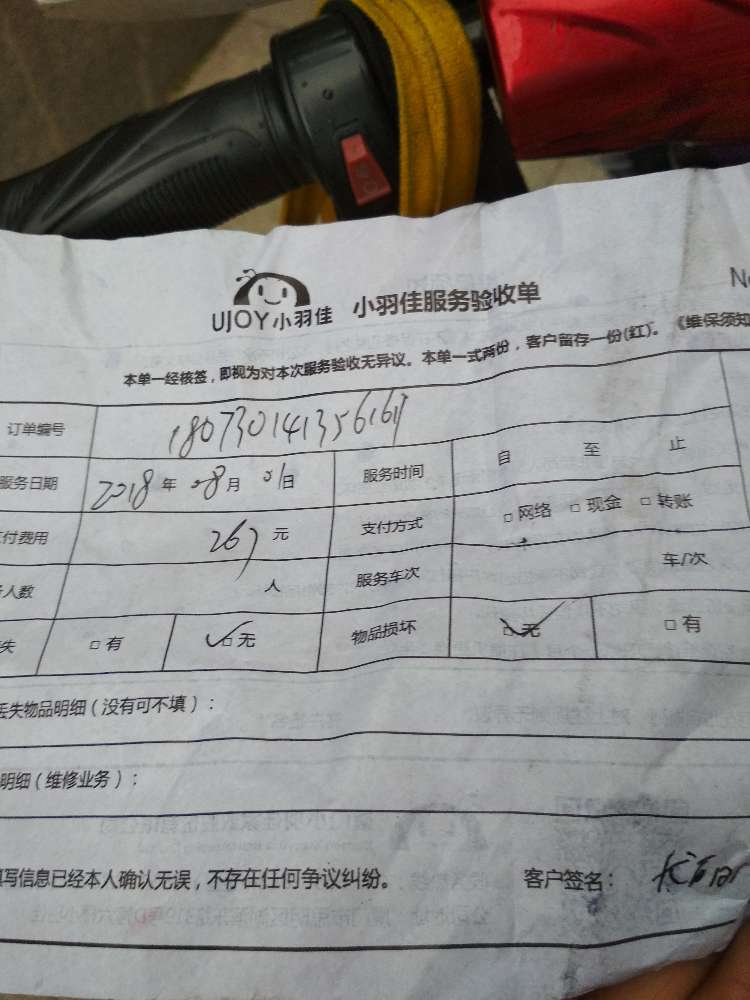 UJOY小羽佳 小羽佳服务验收单
本单一经核签，即视为对本次服务验收无异议。本单一式两份，客户留存一份(红)。《维保须知
订单编号
服务日期 2018年 08月 01日 服务时间 自 至 止
付费用 267元 支付方式 □网络 □现金 □转账
人数 人 服务车次 车/次
失 □有 □无 物品损坏 □无 □有
丢失物品明细（没有可不填）：
明细（维修业务）：
填写信息已经本人确认无误，不存在任何争议纠纷。 客户签名：